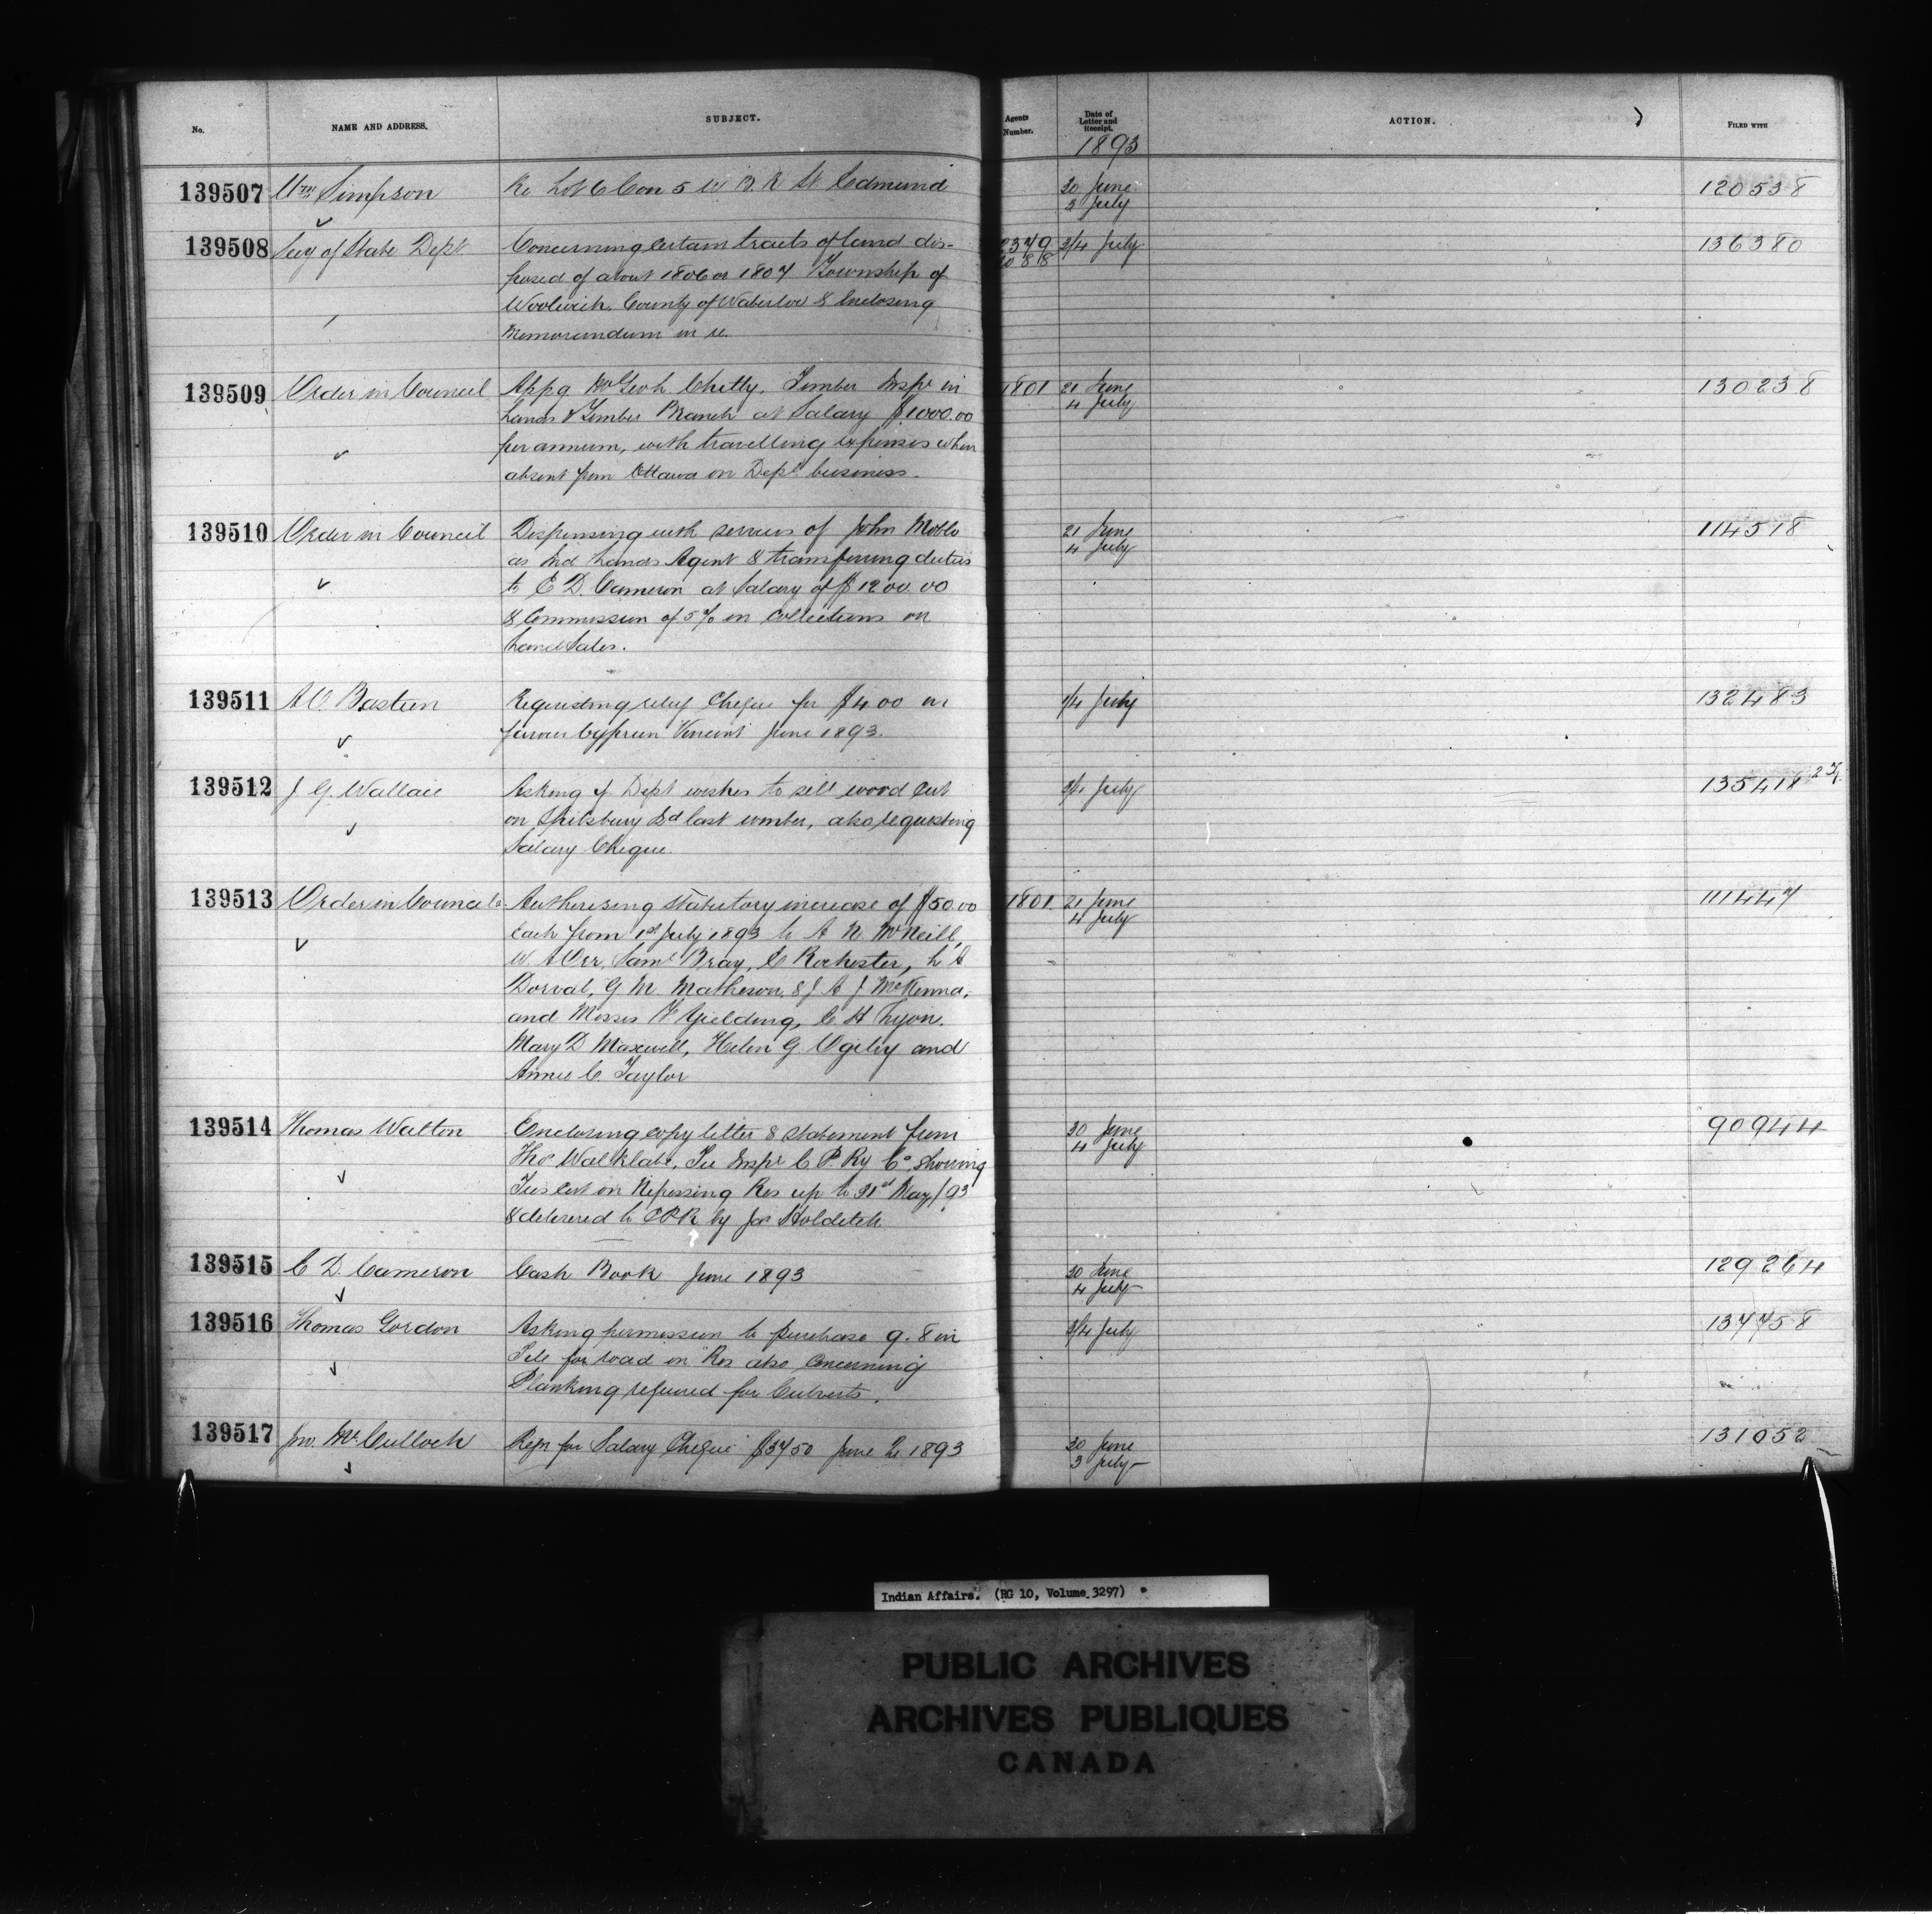 No. NAME AND ADDRESS. SUBJECT. Agents Number. Date of Letter and Receipt. ACTION. FILED WITH
1893
139507 Wm Simpson Re Lot 6 Con 5 W B. R St Edmund 30 June 120538
3 July
139508 Secy of State Dept Concerning certain tracts of land dis- 2379 3/4 July 136380
posed of about 1806 or 1807 Township of 1088
Woolwich, County of Waterloo & Enclosing
Memorandum in re.
139509 Order in Council Appg Mr Geo L Chitty, Timber Inspr in 1801 21 June 130238
Lands & Timber Branch at Salary $1000.00 4 July
per annum, with travelling expenses when
absent from Ottawa on Dept business.
139510 Order in Council Dispensing with services of John 21 June 114518
as Ind Lands Agent & transferring duties 4 July
to E D. Cameron at Salary of $1200.00
& Commission of 5% on Collections on
Land Sales.
139511 A O. Bastien Requesting relief Cheque for $4.00 in 1/4 July 132483
favour Cyprien Vincent June 1893.
139512 J G. Wallace Asking if Dept wishes to sell wood Cut 3/4 July 135418
on Spilsbury Id last winter, also requesting
Salary Cheque.
139513 Order in Council Authorizing statutory increase of $50.00 1801 21 June 111447
Each from 1st July 1893 to A N. McNeill, 4 July
W. A Orr, Saml Bray, C Rochester, L A
Dorval, G M Matheson, & J A J McKenna,
and Misses F. Yielding, C H Lyon.
Mary D Maxwell, Helen G. Ogilvy and
Annie C. Taylor
139514 Thomas Walton Enclosing copy letter & statement from 30 June 90944
Thos Tie Inspr C P. Ry Co. showing 4 July
Ties cut on Nipissing Res up to 31st May/93
& delivered to CPR by Jas Holditch
139515 E D. Cameron Cash Book June 1893 30 June 129264
4 July
139516 Thomas Gordon Asking permission to purchase 9. 8 in 3/4 July 137758
Tile for road in Res also Concerning
Planking required for Culverts.
139517 Jno. McCulloch Reqn for Salary Cheque $37.50 June 1893 30 June 131052
3 July
Indian Affairs. (RG 10, Volume 3297)
PUBLIC ARCHIVES
ARCHIVES PUBLIQUES
CANADA